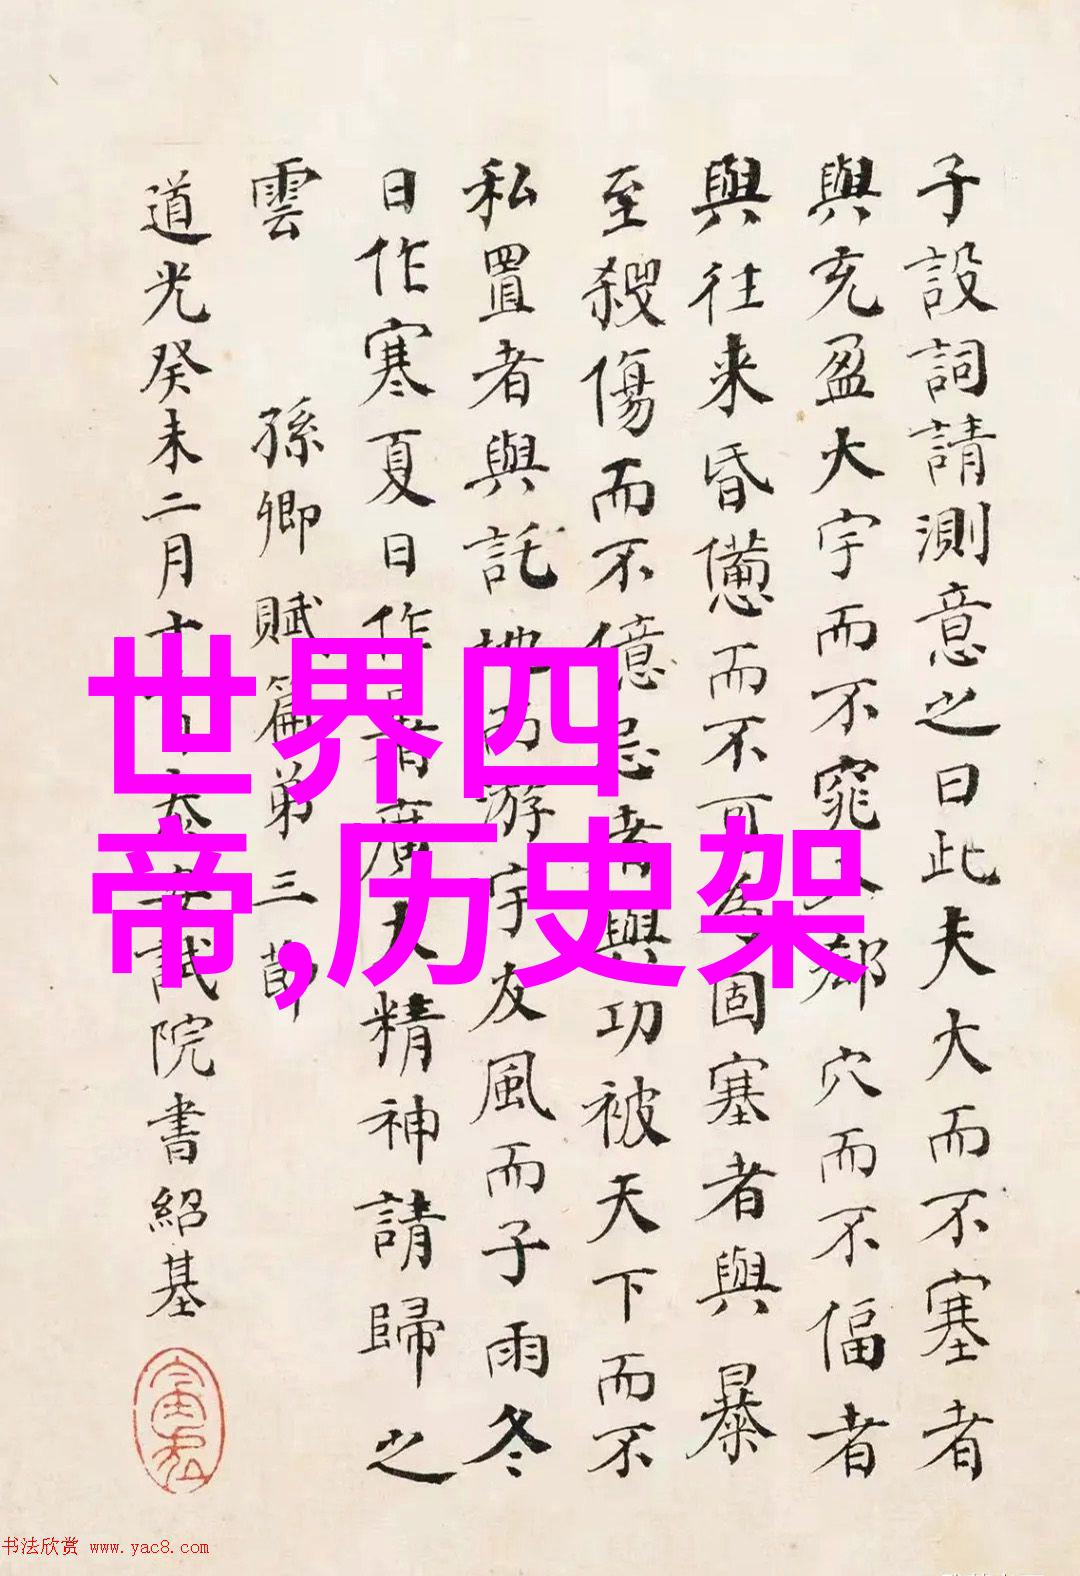 子設詞請測意之曰此夫大而不塞者
與充盈大宇而不窕入郄穴而不偪者
與往来昏憊而不可為固塞者與暴
至殺傷而不億忌者與功被天下而不
私置者與託地而游宇友風而子雨冬
日作寒夏日作暑廣大精神請歸之
雲
孫卿賦篇弟三節
道光癸未二月十
試院書紹基
世界四
帝,历史架
书法欣赏 www.yac8.com